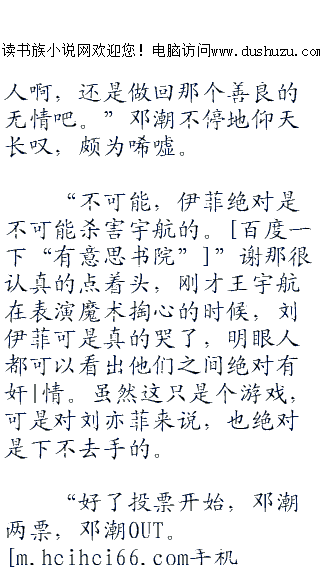 读书族小说网欢迎您！电脑访问www.dushuzu.com
人啊，还是做回那个善良的
无情吧。”邓潮不停地仰天
长叹，颇为唏嘘。
“不可能，伊菲绝对是
不可能杀害宇航的。[百度一
下“有意思书院”]”谢那很
认真的点着头，刚才王宇航
在表演魔术掏心的时候，刘
伊菲可是真的哭了，明眼人
都可以看出他们之间绝对有
奸|情。虽然这只是个游戏，
可是对刘亦菲来说，也绝对
是下不去手的。
“好了投票开始，邓潮
两票，邓潮OUT。
[m.hcihci66.com手机